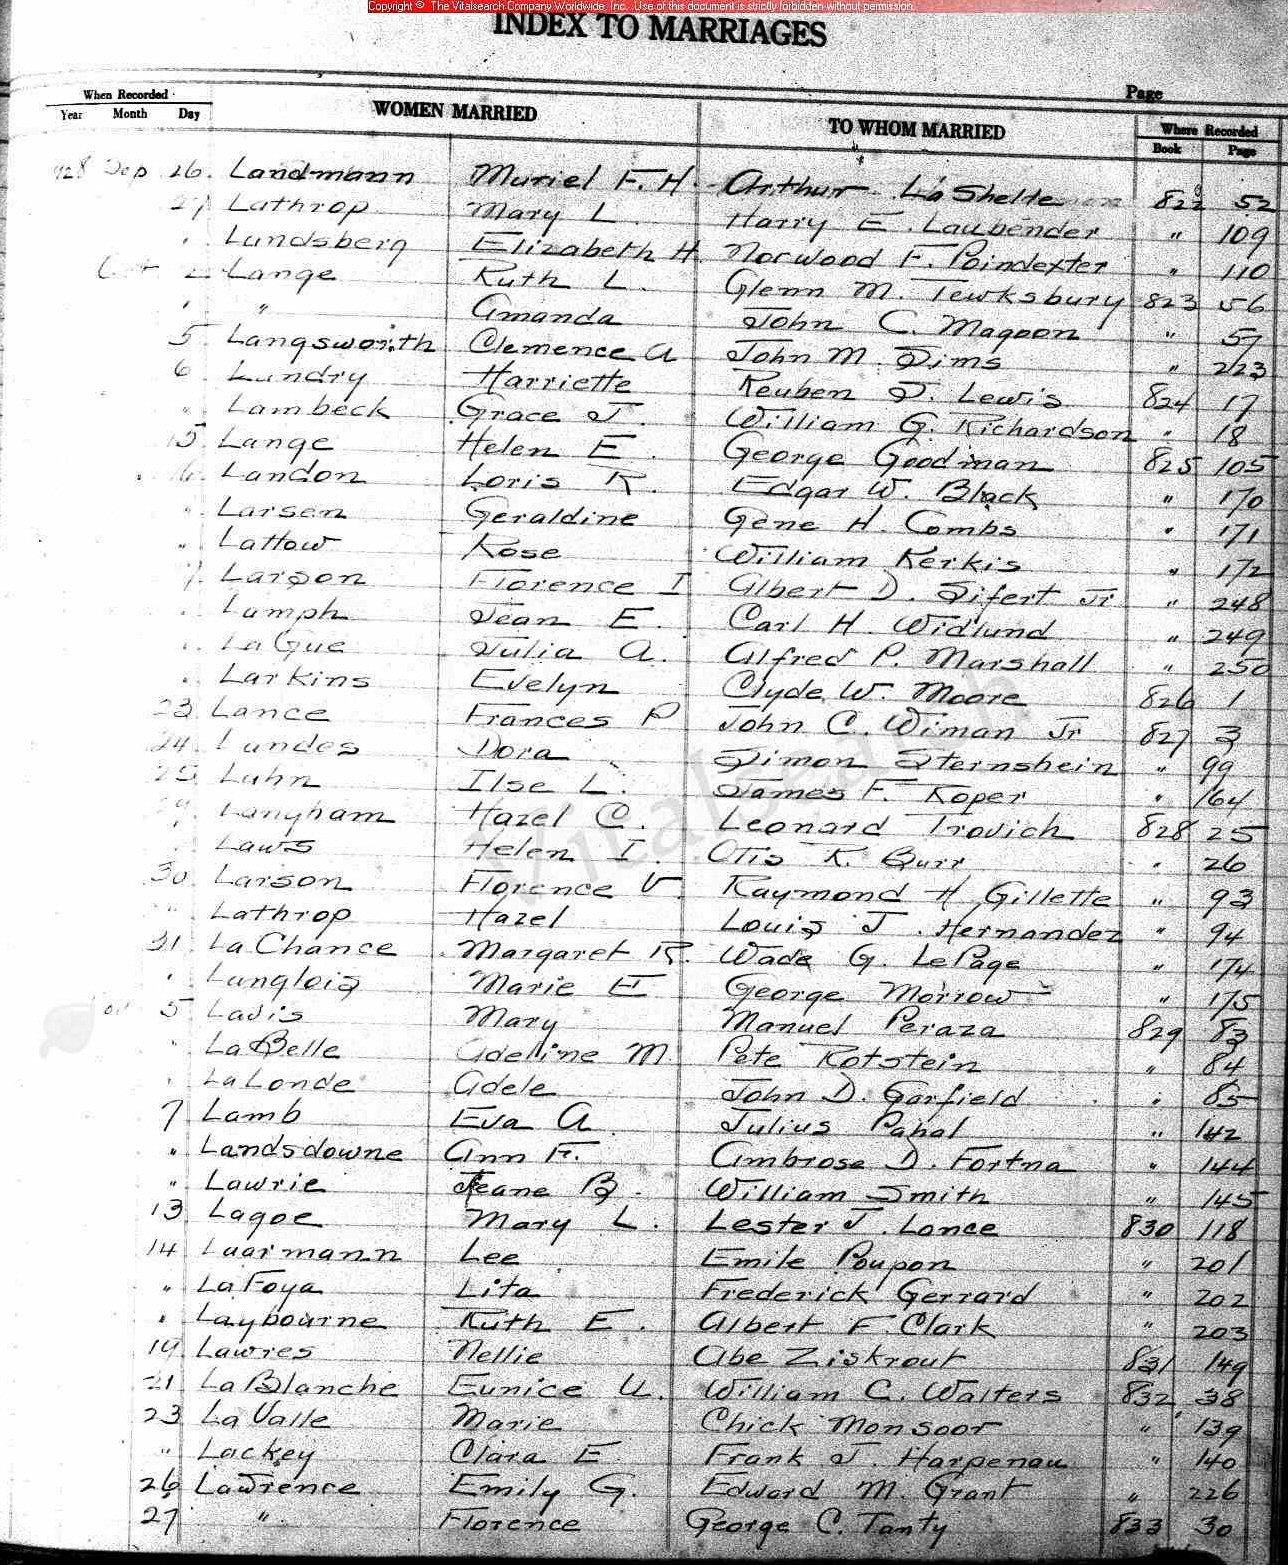 Copyright © The Vitalsearch Company Worldwide, Inc. Use of this document is strictly forbidden without permission.
INDEX TO MARRIAGES
Page
When Recorded WOMEN MARRIED TO WHOM MARRIED Where Recorded
Year Month Day Book Page
1928 Sep 26 Landmann Muriel F. H. Arthur LaShelle 822 52
27 Lathrop Mary L Harry E. Laubender " 109
" Landsberg Elizabeth H Norwood F. Poindexter " 110
Oct 2 Lange Ruth L. Glenn M. Tewksbury 823 56
" " Amanda John C. Magoon " 57
5 Langsworth Clemence A John M Sims " 223
6 Landry Harriette Reuben S. Lewis 824 17
" Lambeck Grace J. William G. Richardson " 18
15 Lange Helen E. George Goodman 825 105
16 Landon Loris R. Edgar W. Black " 170
" Larsen Geraldine Gene H. Combs " 171
" Lattow Rose William Kerkis " 172
17 Larson Florence I Albert D. Sifert Jr " 248
" Lamph Jean E. Carl H. Widlund " 249
" LaGue Julia A. Alfred P. Marshall " 250
" Larkins Evelyn Clyde W. Moore 826 1
23 Lance Frances P John C. Wiman Jr 827 3
24 Landes Dora Simon Sternshein " 99
25 Lahn Ilse L. James F. Roper " 164
29 Langham Hazel C. Leonard Trovich 828 25
" Laws Helen I. Otis K. Burr " 26
30 Larson Florence V. Raymond H Gillette " 93
" Lathrop Hazel Louis J. Hernandez " 94
31 LaChance Margaret R. Wade G. LePage " 174
" Langlois Marie E George Morrow " 175
5 Ladis Mary Manuel Peraza 829 83
" LaBelle Adeline M Pete Rotstein " 84
" LaLonde Adele John D. Garfield " 85
7 Lamb Eva A Julius Pahal " 142
" Landsdowne Ann F. Ambrose D. Fortna " 144
" Lawrie Jeane B. William Smith " 145
13 Lagoe Mary L. Lester J. Lance 830 118
14 Laarmann Lee Emile Poupon " 201
" LaFoya Lita Frederick Gerrard " 202
" Laybourne Ruth E. Albert F. Clark " 203
19 Lawres Nellie Abe Ziskrout 831 149
21 LaBlanche Eunice U. William C. Walters 832 38
23 LaValle Marie Chick Monsoor " 139
" Lackey Clara E Frank J. Harpenau " 140
26 Lawrence Emily G. Edward M. Grant " 226
27 " Florence George C. Tanty 833 30
Vitalsearch